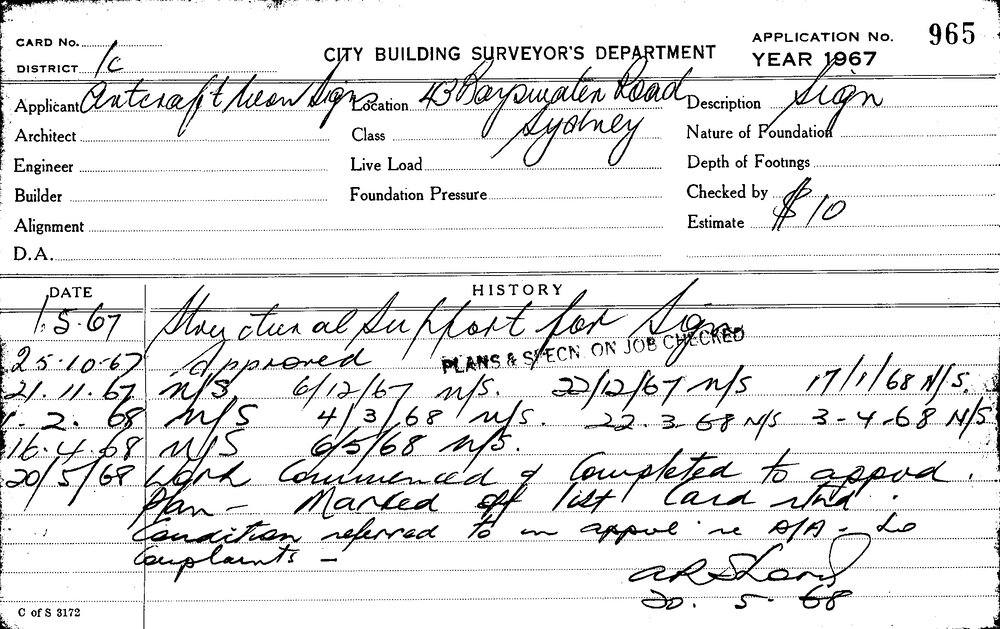 CARD No.
DISTRICT 1c
CITY BUILDING SURVEYOR'S DEPARTMENT
APPLICATION No. 965
YEAR 1967
Applicant Artcraft Neon Signs Location 43 Bayswater Road Sydney Description Sign
Architect Class Nature of Foundation
Engineer Live Load Depth of Footings
Builder Foundation Pressure Checked by
Alignment Estimate $10
D.A.
DATE HISTORY
1.5.67 Structural Support for Sign
PLANS & SPECN ON JOB CHECKED
25.10.67 Approved
21.11.67 N/S 6/12/67 N/S. 22/12/67 N/S 17/1/68 N/S.
1.2.68 N/S 4/3/68 N/S. 22.3.68 N/S 3-4-68 N/S
16.4.68 N/S 6/5/68 N/S.
20/5/68 Work Commenced & Completed to approd.
Plan - Marked off list Card
Condition referred to in re A/A - no
Complaints -
20.5.68
C of S 3172